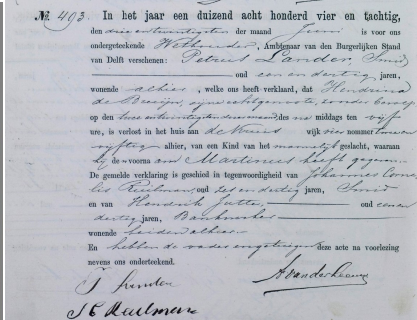 No. 493. In het jaar een duizend acht honderd vier en tachtig,
den drie en twintigsten der maand Juni is voor ons
ondergeteekende Wethouder, Ambtenaar van den Burgerlijken Stand
van Delft verschenen: Petrus Lander, Smid
oud een en dertig jaren,
wonende alhier, welke ons heeft verklaard, dat Hendrina
de Bruijn, zijne echtgenoote, zonder beroep
op den twee en twintigsten dezer maand, des na middags ten vijf
ure, is verlost in het huis aan de wijk vier nummer
vijftig alhier, van een Kind van het mannelijk geslacht, waaraan
hij de voornaam Martinus heeft gegeven.
De gemelde verklaring is geschied in tegenwoordigheid van Johannes Corne
lis Reulman, oud zes en dertig jaren, Smid
en van Hendrik Jutte, oud een en
dertig jaren,
wonende beiden alhier
En hebben de vader en getuigen deze acte na voorlezing
nevens ons onderteekend.
P Lander A van der Leeuw
J C Reulman